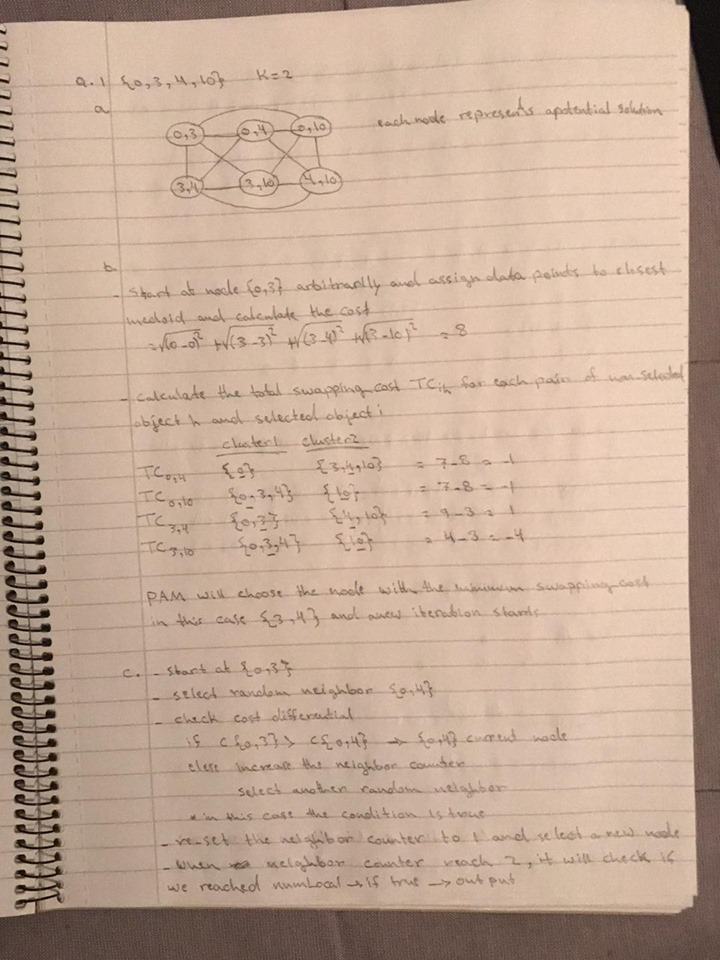 Q.1 {0,3,4,10} K=2
a
each node represents a potential solution
0,3 0,4 0,10
3,4 3,10 4,10
b
- Start at node {0,3} arbitrarily and assign data points to closest
medoid and calculate the cost
= √(0-0)² + √(3-3)² + √(3-4)² + √(3-10)² = 8
- calculate the total swapping cost TCih for each pair of non-selected
object h and selected object i
cluster1 cluster2
TC0,4 {0} {3,4,10} = 7-8 = -1
TC0,10 {0,3,4} {10} = 7-8 = -1
TC3,4 {0,3} {4,10} = 9-3 = 1
TC3,10 {0,3,4} {10} = 4-3 = -4
PAM will choose the node with the minimum swapping cost
in this case {3,4} and a new iteration starts
c. - start at {0,3}
- select random neighbor {0,4}
- check cost differential
if C{0,3} > C{0,4} → {0,4} current node
else increase the neighbor counter
select another random neighbor
* in this case the condition is true
- re-set the neighbor counter to 1 and select a new node
- when neighbor counter reach 2, it will check if
we reached numLocal → if true → output